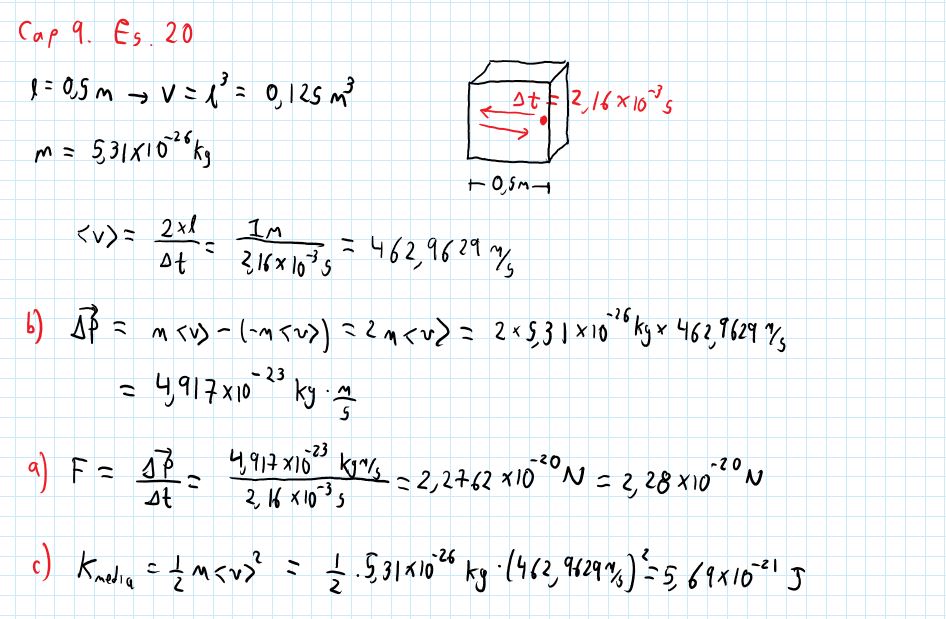 Cap 9. Es. 20
l = 0,5 m → V = l³ = 0,125 m³
Δt = 2,16×10⁻³ s
m = 5,31×10⁻²⁶ kg
⊢ 0,5m ⊣
<v> = 2×l/Δt = 1m/2,16×10⁻³ s = 462,9629 m/s
b) Δp⃗ = m<v> - (-m<v>) = 2m<v> = 2×5,31×10⁻²⁶ kg × 462,9629 m/s
= 4,917×10⁻²³ kg · m/s
a) F = Δp⃗/Δt = 4,917×10⁻²³ kg m/s / 2,16×10⁻³ s = 2,2762×10⁻²⁰ N = 2,28×10⁻²⁰ N
c) K media = 1/2 m<v>² = 1/2 · 5,31×10⁻²⁶ kg · (462,9629 m/s)² = 5,69×10⁻²¹ J